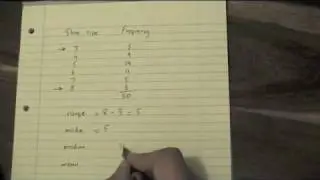 Shoe size Frequency
→ 3 3
4 9
5
6
7
→ 8
30
range = 8 - 3 = 5
mode = 5
median
mean